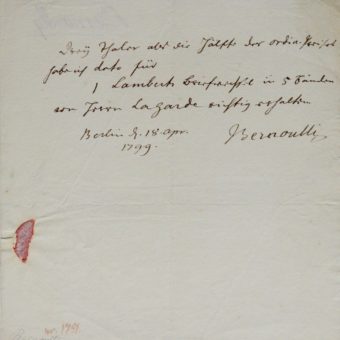 Drey Thaler als die Hälfte der ordin. Preises
habe ich dato für
1 Lamberts Briefwechsel in 5 Bänden
von Herrn Lagarde richtig erhalten
Berlin d. 18 Apr.
1799.
Bernoulli